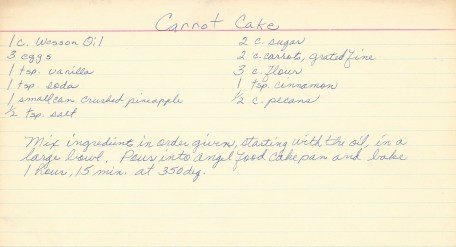 Carrot Cake
1 c. Wesson Oil
3 eggs
1 tsp. vanilla
1 tsp. soda
1 small can crushed pineapple
1/2 tsp. salt
2 c. sugar
2 c. carrots, grated fine
3 c. flour
1 tsp. cinnamon
1/2 c. pecans
Mix ingredient in order given, starting with the oil, in a
large bowl. Pour into angel food cake pan and bake
1 hour, 15 min. at 350 deg.